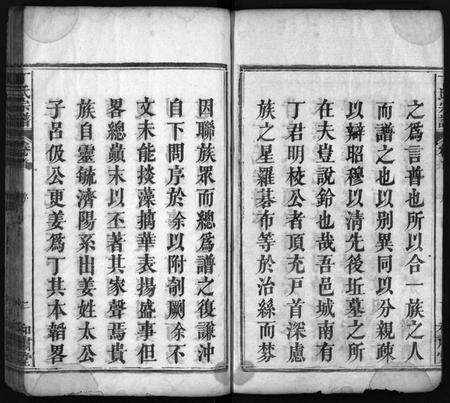 之為言普也所以合一族之人
而譜之也以別異同以分親疎
以辯昭穆以清先後坵墓之所
在夫豈說鈴也哉吾邑城南有
丁君明校公者頂充戸首深慮
族之星羅碁布等於治絲而棼
因聯族眾而總為譜之復謙沖
自下問序於余以附劄劂余不
文未能掞藻摛華表揚盛事但
畧總巔末以丕著其家聲焉貴
族自靈毓濟陽系出姜姓太公
子呂伋公更姜為丁其本韜畧
氏宗譜